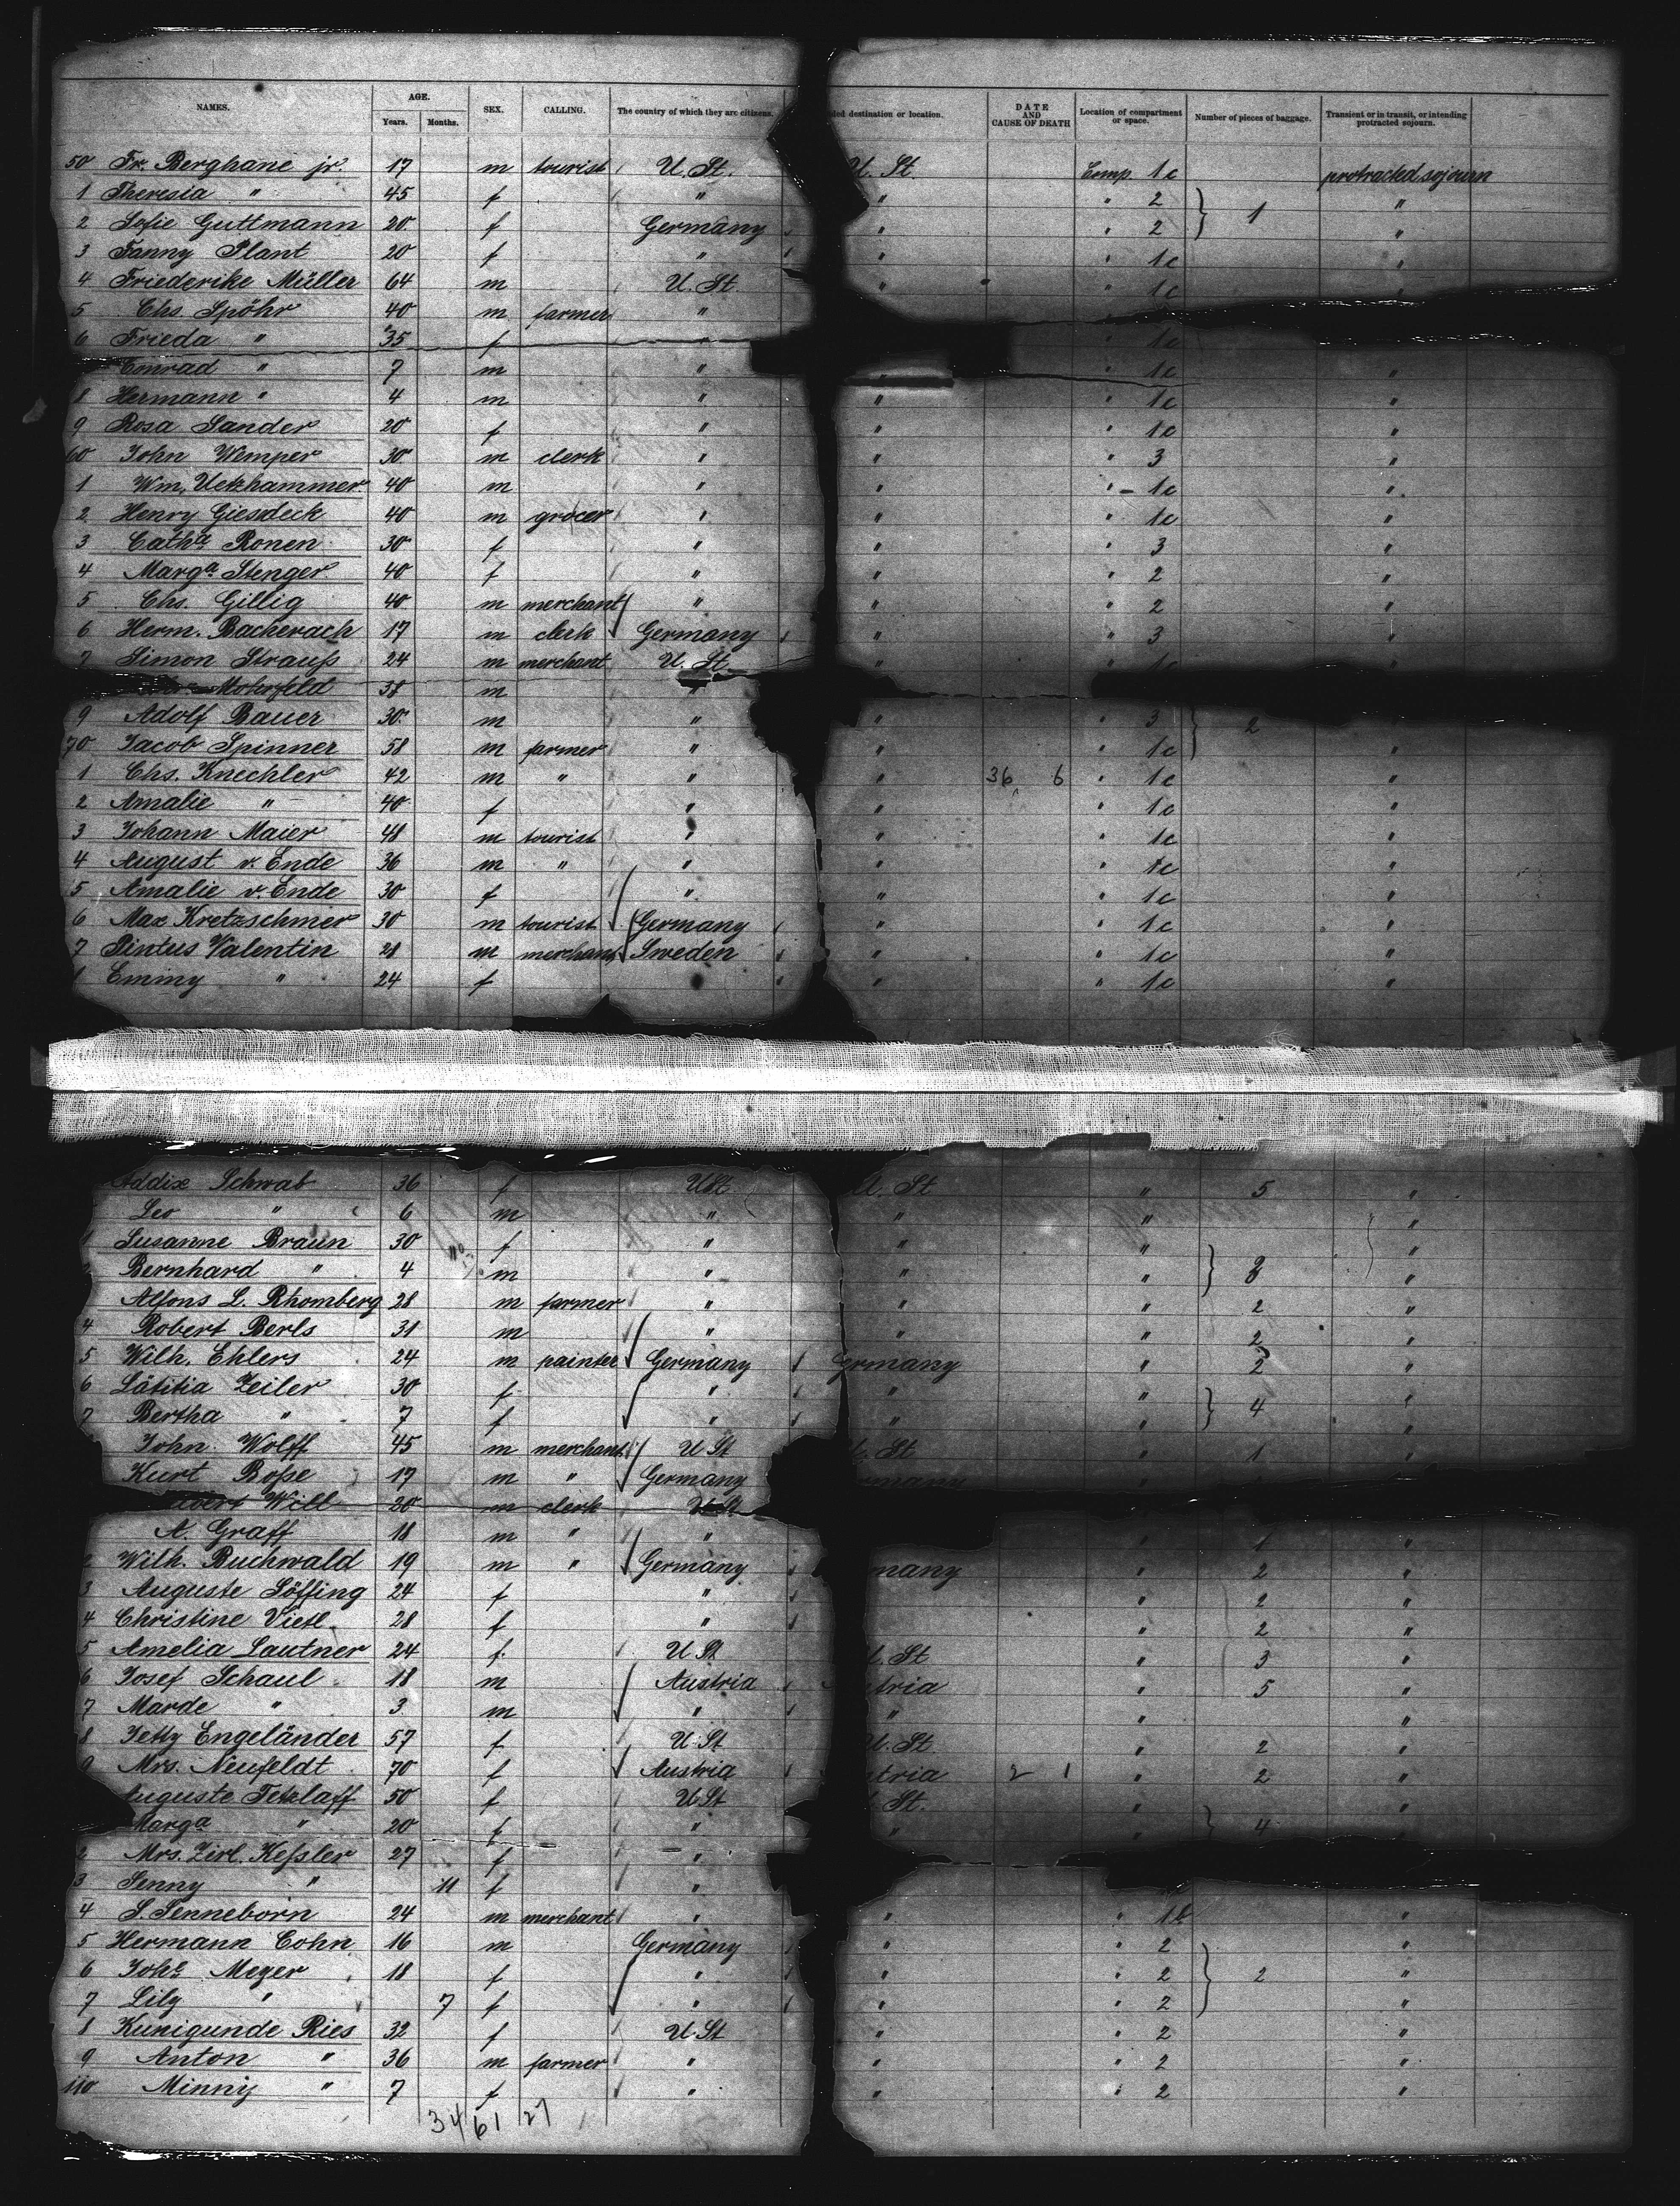 NAMES. AGE. Years. Months. SEX. CALLING. The country of which they are citizens. ded destination or location. DATE AND CAUSE OF DEATH Location of compartment or space. Number of pieces of baggage. Transient or in transit, or intending protracted sojourn.
50 Fr. Berghane jr. 17 m tourist U. St. U. St. Comp. 1c protracted sojourn
1 Theresia " 45 f " " " 2 "
2 Sofie Guttmann 20 f Germany " " 2 } 1 "
3 Fanny Plant 20 f " " " 1c "
4 Friederike Müller 64 m U. St " " 1c "
5 Chs. Spöhr 40 m farmer "
6 Frieda " 35 f " " 1c
Conrad " 7 m " " " 1c "
8 Hermann " 4 m " " " 1c "
9 Rosa Sander 20 f " " " 1c "
60 John Wemper 30 m clerk " " " 3 "
1 Wm. Uetzhammer 40 m " " " 1c "
2 Henry Giesdeck 40 m grocer " " " 1c "
3 Catha Ronen 30 f " " " 3 "
4 Marga Stenger 40 f " " " 2 "
5 Chs. Gillig 40 m merchant " " " 2 "
6 Herm. Bacherach 17 m clerk Germany " " 3 "
7 Simon Strauss 24 m merchant U. St " 1c "
Mohrfeld 38 m "
9 Adolf Bauer 30 m " " " 3 } 2 "
70 Jacob Spinner 58 m farmer " " " 1c "
1 Chs. Knechler 42 m " " " 36 6 " 1c "
2 Amalie " 40 f " " " 1c "
3 Johann Maier 48 m tourist " " " 1c "
4 August v. Ende 36 m " " " " 1c "
5 Amalie v. Ende 30 f " " " 1c "
6 Max Kretzschmer 30 m tourist Germany " " 1c "
7 Pintus Valentin 28 m merchant Sweden " " 1c "
8 Emmy " 24 f " " " 1c "
Addix Schwab 36 f U St U. St " 5 "
Leo " 6 m " " " "
1 Susanne Braun 30 f " " " "
2 Bernhard " 4 m " " " } "
Alfons L. Rhomberg 28 m farmer " " " 2 "
4 Robert Berls 31 m " " " 2 "
5 Wilh. Ehlers 24 m painter Germany ermany " 2 "
6 Lätitia Zeiler 30 f " " " "
7 Bertha " 7 f " " " } 4 "
John Wolff 45 m merchant U St U. St " 1 "
Kurt Bosse 17 m " Germany rmany
Will 20 m clerk U St
A. Graff 18 m " " " 1 "
2 Wilh. Buchwald 19 m " Germany many " 2 "
3 Auguste Löffing 24 f " " 2 "
4 Christine Vietl 28 f " " 2 "
5 Amelia Lautner 24 f U St U. St " 3 "
6 Josef Schaul 18 m Austria tria " 5 "
7 Marde " 3 m " " " "
8 Jetty Engeländer 57 f U. St U. St. " 2 "
9 Mrs. Neufeldt 70 f Austria stria 2 1 " 2 "
Auguste Tetzlaff 50 f U St St. " "
Marga " 20 f " " " } 4 "
2 Mrs. Zirl. Kessler 27 f "
3 Senny " 11 f "
4 S. Senneborn 24 m merchant " " " 1b "
5 Hermann Cohn 16 m Germany " " 2 "
6 Johe Meyer 18 f " " " 2 } 2 "
7 Lily " 7 f " " " 2 "
8 Kunigunde Ries 32 f U. St " " 2 "
9 Anton " 36 m farmer " " " 2 "
110 Minniy " 7 f " " " 2 "
34 61 27